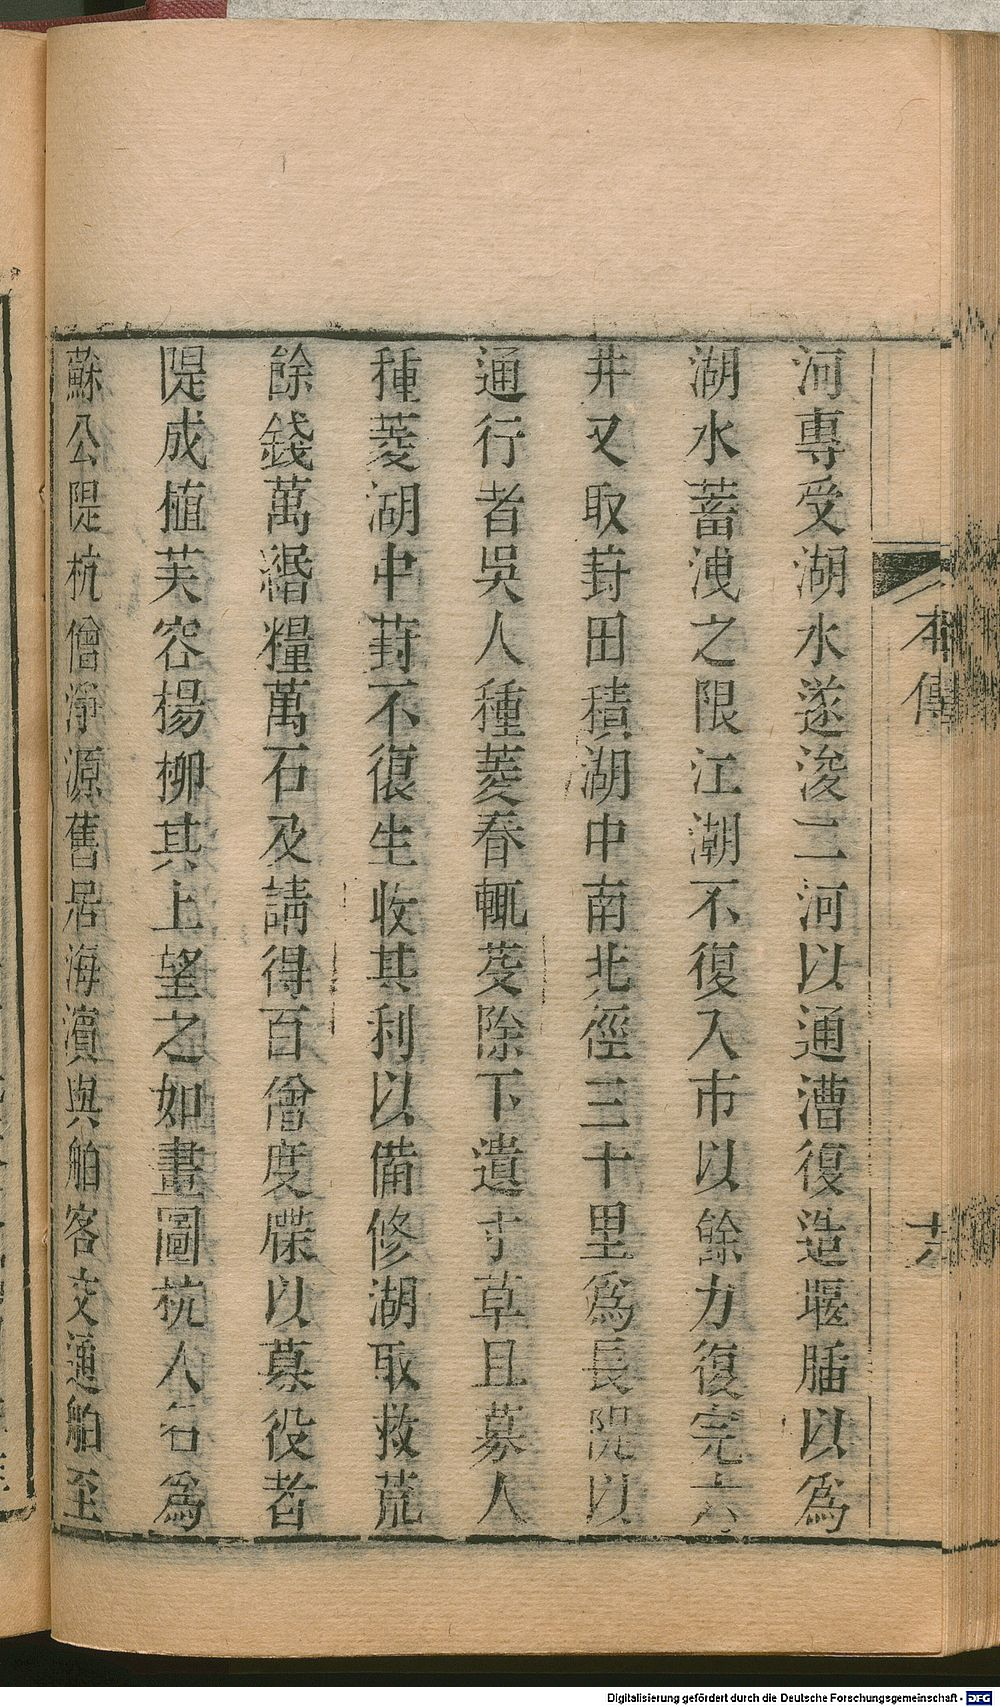 本傳
十六
河專受湖水遂浚二河以通漕復造堰牐以為
湖水蓄洩之限江潮不復入市以餘力復完六
井又取葑田積湖中南北徑三十里為長隄以
通行者吳人種菱春輒芟除不遺寸草且募人
種菱湖中葑不復生收其利以備修湖取救荒
餘錢萬緡糧萬石及請得百僧度牒以募役者
隄成植芙容楊柳其上望之如畫圖杭人名為
蘇公隄杭僧淨源舊居海濱與舶客交通舶至
Digitalisierung gefördert durch die Deutsche Forschungsgemeinschaft - DFG